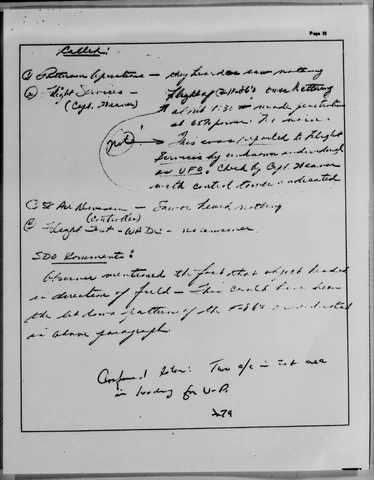 Page 10
Called:
① Patterson Operations — they heard or saw nothing
② Flight Services — Flight of F-86's over Kettering
(Capt. Weaver) at about 1:30 — made penetration
at 65% power. No noise.
not! → This was reported to Flight
Services by unknown individual
as UFO. Check by Capt. Weaver
with control tower indicated
Air Division — Saw or heard nothing
(Controller)
Flight Test - WADC — no answer.
SDO Comments:
Observer mentioned the fact that object headed
in direction of field — This could have been
the let down pattern of the F-86's as indicated
in above paragraph.
Confirmed later: Two a/c in test area
in heading for W-P.